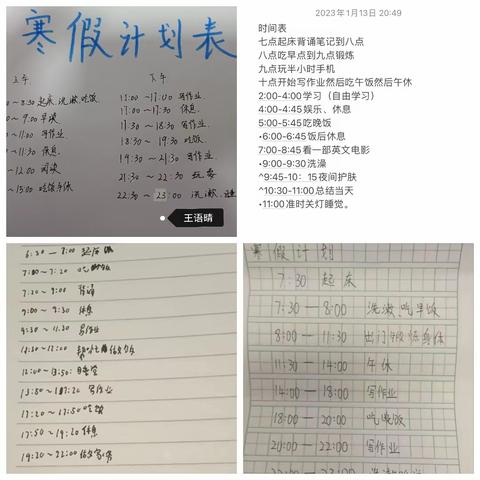 寒假计划表
上午
下午
~8:30 起床、洗漱、吃饭
15:00 ~17:00 写作业
~9:00 早读
17:00 ~17:30 休息
~11:00 写作业
17:30 ~18:30 写作业
~11:30 休息
18:30 ~ 19:30 吃饭
~12:00 阅读
19:30 ~21:30 写作业
~15:00 吃饭午休
21:30 ~ 22:30 玩耍
22:30 ~ 23:00 洗漱、睡
王语晴
2023年1月13日 20:49
时间表
七点起床背诵笔记到八点
八点吃早点到九点锻炼
九点玩半小时手机
十点开始写作业然后吃午饭然后午休
2:00-4:00学习（自由学习）
4:00-4:45娱乐、休息
5:00-5:45吃晚饭
•6:00-6:45饭后休息
7:00-8:45看一部英文电影
•9:00-9:30洗澡
^9:45-10：15夜间护肤
^10:30-11:00总结当天
•11:00准时关灯睡觉。
6:30 ~ 7:00 起床
7:00~ 7:20 吃饭
7:20 ~ 9:00 背诵
9:00 ~ 9:30 休息
9:30 ~ 11:30 写作业
11:30 ~ 12:00
12:00 ~13:50: 睡觉
13:50 ~ 17:20 写作业
17:20 ~ 17:50 吃饭
17:50 ~ 19:20 休息
19:20 ~ 22:00 做家务
寒假计划
7:30 起床
7:30 — 8:00 洗漱、吃早饭
8:00 — 11:30 出门锻炼身体
11:30 — 14:00 午休
14:00 — 18:00 写作业
18:00 — 20:00 吃晚饭
20:00 — 22:00 写作业